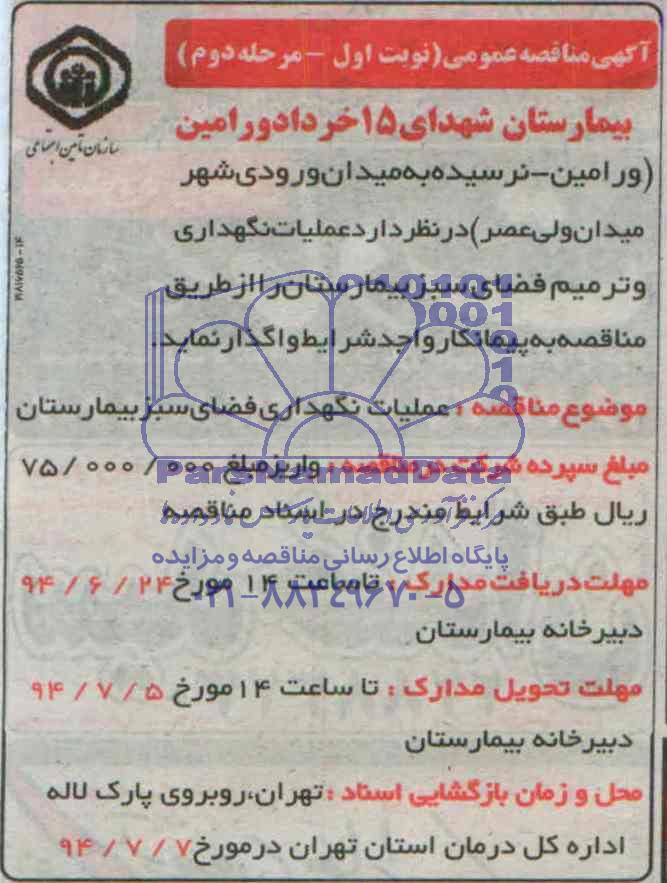 آگهی مناقصه عمومی (نوبت اول - مرحله دوم)
سازمان تأمین اجتماعی
بیمارستان شهدای ۱۵ خرداد ورامین
(ورامین-نرسیده به میدان ورودی شهر
میدان ولی عصر) در نظر دارد عملیات نگهداری
و ترمیم فضای سبز بیمارستان را از طریق
مناقصه به پیمانکار واجد شرایط واگذار نماید.
موضوع مناقصه : عملیات نگهداری فضای سبز بیمارستان
مبلغ سپرده شرکت در مناقصه : واریز مبلغ ۷۵/۰۰۰/۰۰۰
ریال طبق شرایط مندرج در اسناد مناقصه
مهلت دریافت مدارک : تا ساعت ۱۴ مورخ ۹۴/۶/۲۴
دبیرخانه بیمارستان
مهلت تحویل مدارک : تا ساعت ۱۴ مورخ ۹۴/۷/۵
دبیرخانه بیمارستان
محل و زمان بازگشایی اسناد : تهران، روبروی پارک لاله
اداره کل درمان استان تهران در مورخ ۹۴/۷/۷
010101
0001
ParsNamadData
پایگاه اطلاع رسانی مناقصه و مزایده
۰۲۱-۸۸۳۴۹۶۷۰-۵